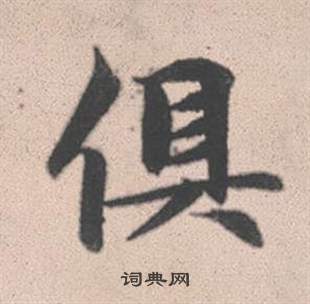 俱
词典网